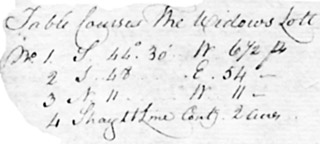 Table Courses The Widows Lott
No 1. S 44° 30' W 6 1/2 ps
2 S. 48 E. 54 —
3 N 11 W 11 —
4 Straght Line Contg. 2 acres